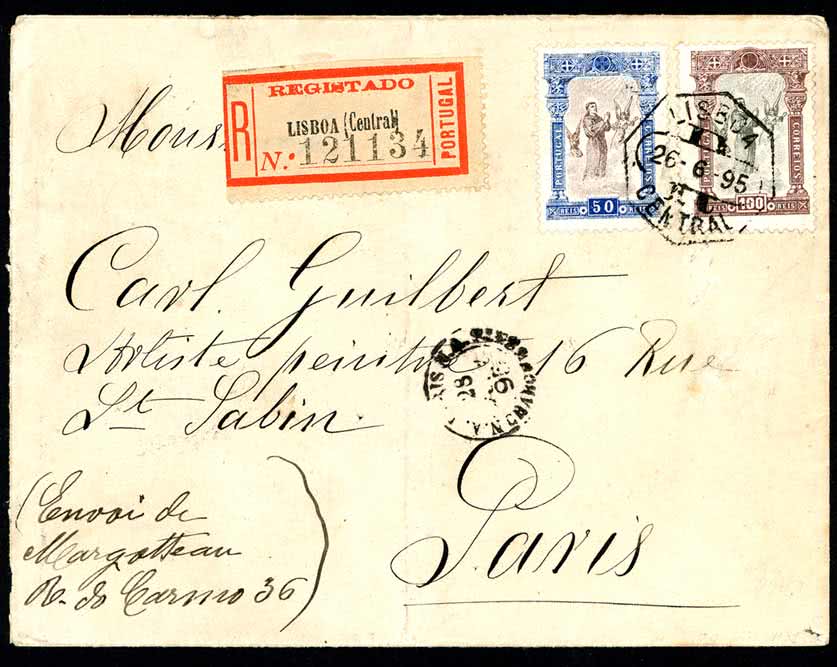 REGISTADO
R
LISBOA (Central)
N.º 121134
PORTUGAL
PORTUGAL
CORREIOS
REIS 50 REIS
PORTUGAL
CORREIOS
REIS 100 REIS
LISBOA
26-6-95
CENTRAL
Mons
Carl. Guilbert
Artiste peintre 16 Rue
St. Sabin
28
95
Paris
(Envoi de
Margotteau
R. do Carmo 36)